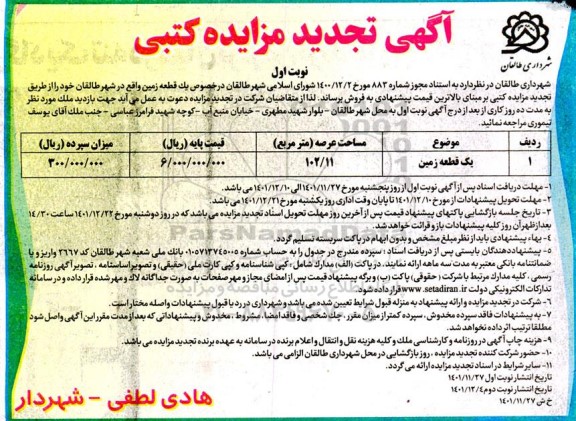 آگهی تجدید مزایده کتبی
شهرداری طالقان
نوبت اول
شهرداری طالقان در نظر دارد به استناد مجوز شماره ۸۸۳ مورخ ۱۴۰۰/۱۲/۲ شورای اسلامی شهر طالقان درخصوص یک قطعه زمین واقع در شهر طالقان خود را از طریق
تجدید مزایده کتبی بر مبنای بالاترین قیمت پیشنهادی به فروش برساند. لذا از متقاضیان شرکت در تجدید مزایده دعوت به عمل می آید جهت بازدید ملک مورد نظر
به مدت ده روز کاری از بعد از درج آگهی نوبت اول به محل شهر طالقان - بلوار شهید مطهری - خیابان منبع آب - کوچه شهید فرامرز عباسی - جنب ملک آقای یوسف
تیموری مراجعه نمائید.
ردیف موضوع مساحت عرصه (متر مربع) قیمت پایه (ریال) میزان سپرده (ریال)
۱ یک قطعه زمین ۱۰۲/۱۱ ۶/۰۰۰/۰۰۰/۰۰۰ ۳۰۰/۰۰۰/۰۰۰
۱- مهلت دریافت اسناد پس از آگهی نوبت اول از روز پنجشنبه مورخ ۱۴۰۱/۱۱/۲۷ الی ۱۴۰۱/۱۲/۱۰ می باشد.
۲- مهلت تحویل پیشنهادات از مورخ ۱۴۰۱/۱۲/۱۰ تا پایان وقت اداری روز یکشنبه مورخ ۱۴۰۱/۱۲/۲۱ می باشد.
۳- تاریخ جلسه بازگشایی پاکتهای پیشنهاد قیمت پس از آخرین روز مهلت تحویل اسناد تجدید مزایده می باشد که در روز دوشنبه مورخ ۱۴۰۱/۱۲/۲۲ ساعت ۱۴/۳۰
بعدازظهر آن روز کلیه پیشنهادات باز و قرائت خواهد شد.
۴- بهاء پیشنهادی باید از نظر مبلغ مشخص و بدون ابهام در پاکت سربسته تسلیم گردد.
۵- پیشنهاددهندگان بایستی پس از دریافت اسناد؛ سپرده مندرج در جدول را به حساب شماره ۰۱۰۵۷۱۳۷۴۵۰۰۵ بانک ملی شعبه شهر طالقان کد ۲۶۶۷ واریز و یا
ضمانتنامه بانکی معتبر به مدت سه ماهه ارائه نمایند، در پاکت (الف) مدارک شامل: کپی شناسنامه و کپی کارت ملی (حقیقی) و تصویر اساسنامه، تصویر آگهی روزنامه
رسمی، کلیه مدارک مرتبط با شرکت (حقوقی)، پاکت (ب) و برگه پیشنهاد قیمت پس از امضای مجاز و مهر صفحات به صورت جداگانه لاک و مهر شده قرار داده و در سامانه
تدارکات الکترونیکی دولت www.setadiran.ir قرار داده شود.
۶- شرکت در تجدید مزایده و ارائه پیشنهاد به منزله قبول شرایط تعیین شده می باشد و شهرداری در رد یا قبول پیشنهادات واصله مختار است.
۷- به پیشنهادات فاقد سپرده مخدوش، سپرده کمتر از میزان مقرر، چک شخصی و فاقد امضا، مشروط، مخدوش و پیشنهاداتی که بعد از مدت مقرر این آگهی واصل شود
مطلقا ترتیب اثر داده نخواهد شد.
۹- هزینه چاپ آگهی در روزنامه و کارشناسی ملک و کلیه هزینه نقل و انتقال و اعلام برنده در سامانه به عهده برنده تجدید مزایده می باشد.
۱۰- حضور شرکت کننده تجدید مزایده، روز بازگشایی در محل شهرداری طالقان الزامی می باشد.
۱۱- سایر شرایط در اسناد تجدید مزایده ارائه می گردد.
تاریخ انتشار نوبت اول ۱۴۰۱/۱۱/۲۷
تاریخ انتشار نوبت دوم ۱۴۰۱/۱۲/۴
خ ش ۱۴۰۱/۱۱/۲۷
هادی لطفی - شهردار